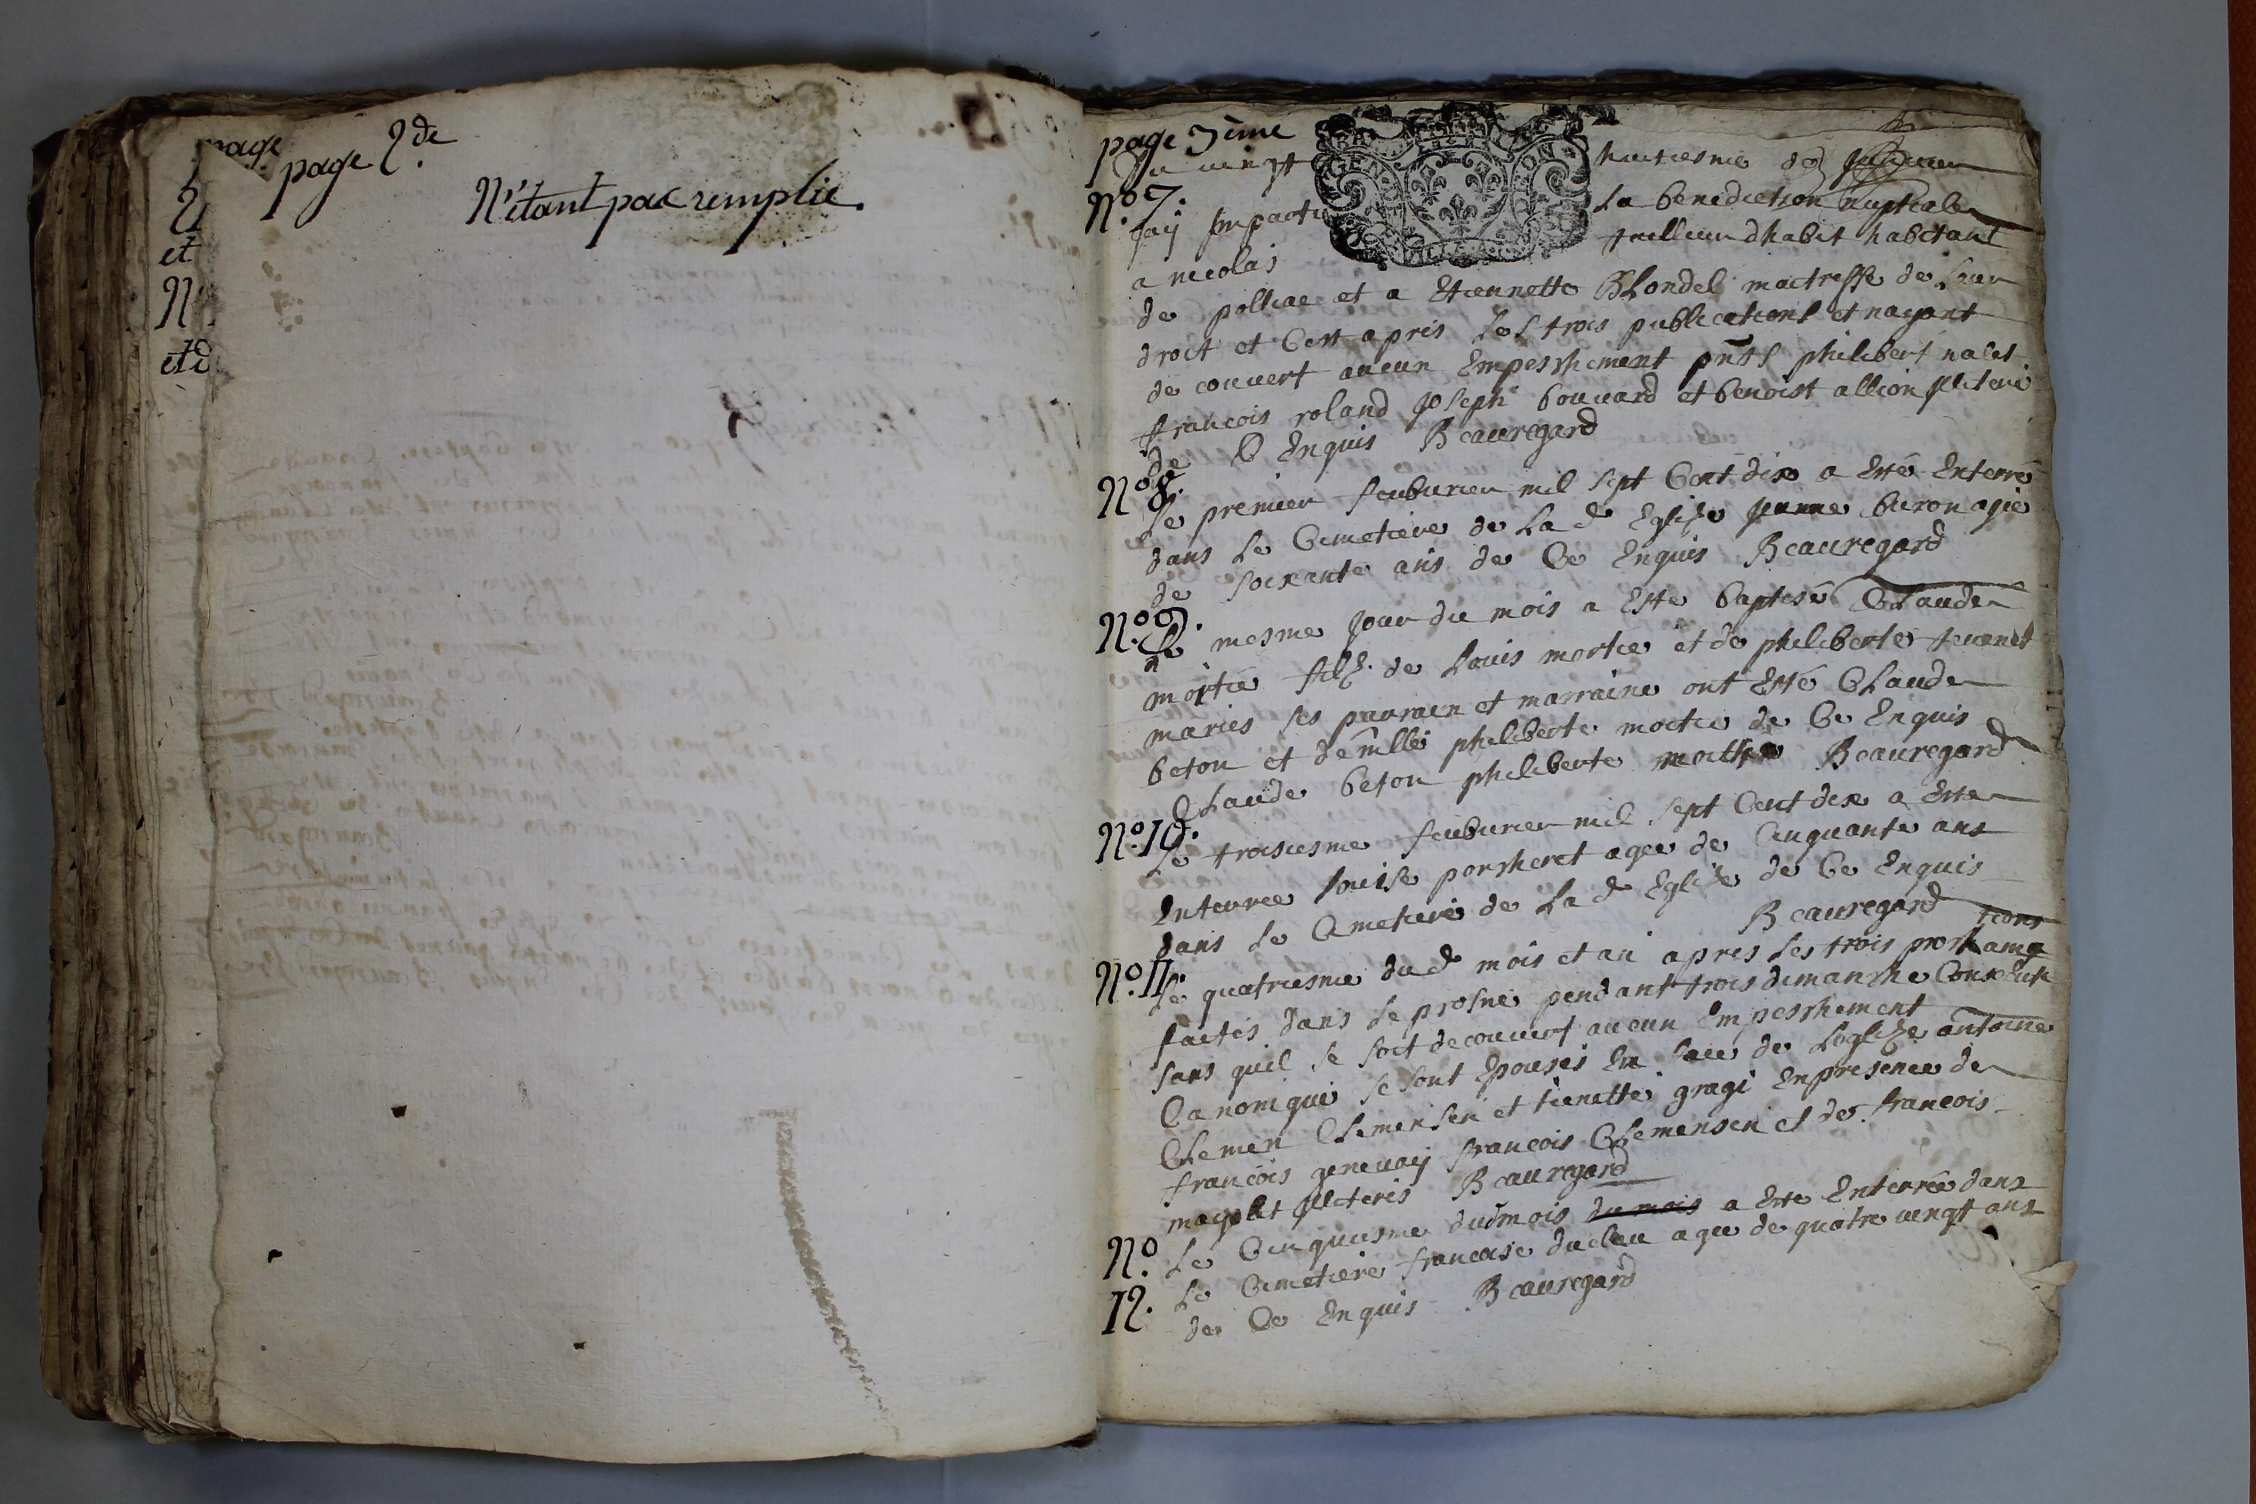 page
page 2de
N'étant pas remplie.
et
page 3ème
Le vingt huitiesme de Januier
N.o 7.
Jay Imparti La benediction nuptiale
a nicolas tailleur dhabit habitant
de et a Etiennette Blondel maitresse de Leur
droit et Cest apres Les trois publications et nayant
de couvert aucun Empeschement pnts philibert nalet
francois roland Joseph bouuard et benoist allion
de Ce Enquis Beauregard
N.o 8.
Le premier feuburier mil sept Cent dix a Esté Enterré
dans Le Cimetiere de La de Eglize Jeanne buron agie
de soixante ans de Ce Enquis Beauregard
N.o 9.
Le mesme Jour du mois a Este baptisé Claude
mortie filz de Louis mortie et de philiberte teuenet
maries ses parrain et marraine ont Esté Claude
beton et demlle philiberte mortie de Ce Enquis
Claude beton philiberte Beauregard
N.o 10.
Le troisiesme feuburier mil sept Cent dix a Este
Enterree Louise porcheret agee de Cinquante ans
dans Le Cimetiere de La de Eglize de Ce Enquis
Beauregard
tions
N.o 11.
Le quatriesme dud mois et an apres Les trois proclama
faites dans Le prosne pendant trois dimanche Consecutif
sans quil se soit decouuert aucun Empeschement
Canonique se sont Epousés En face de Leglize antoine
Clemen Clemensen et tienette gragi En presence de
francois geneuay francois Clemensen et de francois
magolet Beauregard
N.o
12.
Le Cinquiesme dud mois du mois a Este Enterrée dans
Le Cimetiere francoise duclau agee de quatre vingt ans
de Ce Enquis Beauregard